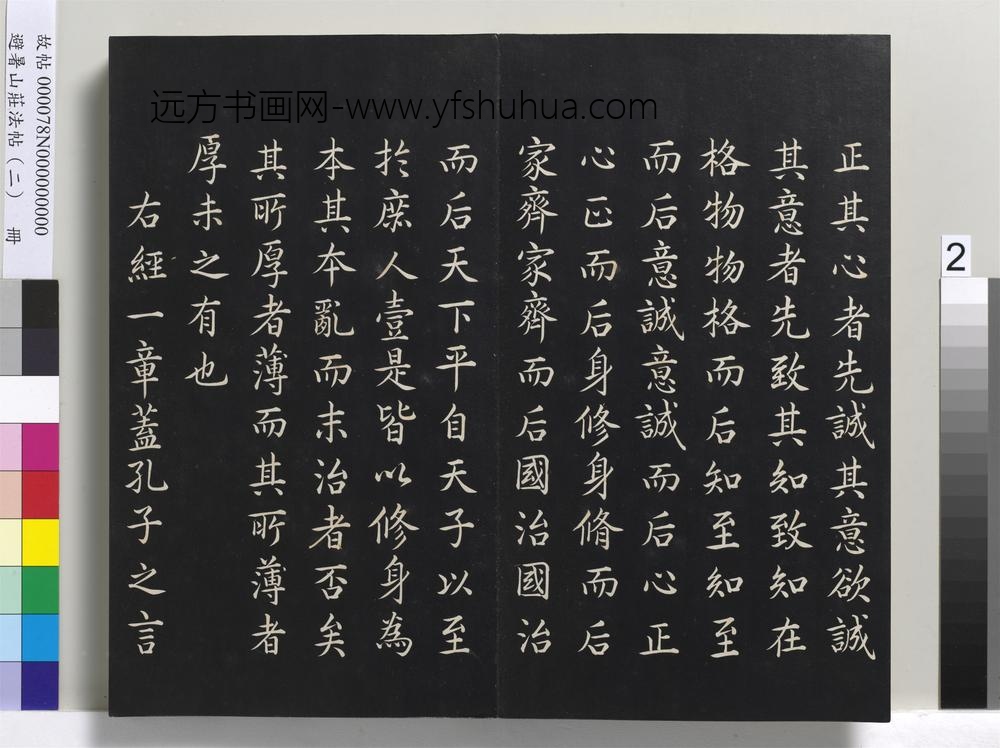 正其心者先誠其意欲誠
其意者先致其知致知在
格物物格而后知至知至
而后意誠意誠而后心正
心正而后身修身脩而后
家齊家齊而后國治國治
而后天下平自天子以至
於庶人壹是皆以修身為
本其本亂而末治者否矣
其所厚者薄而其所薄者
厚未之有也
右經一章蓋孔子之言
远方书画网-www.yfshuhua.com
故帖 000078N000000000
避暑山莊法帖（二） 冊
2